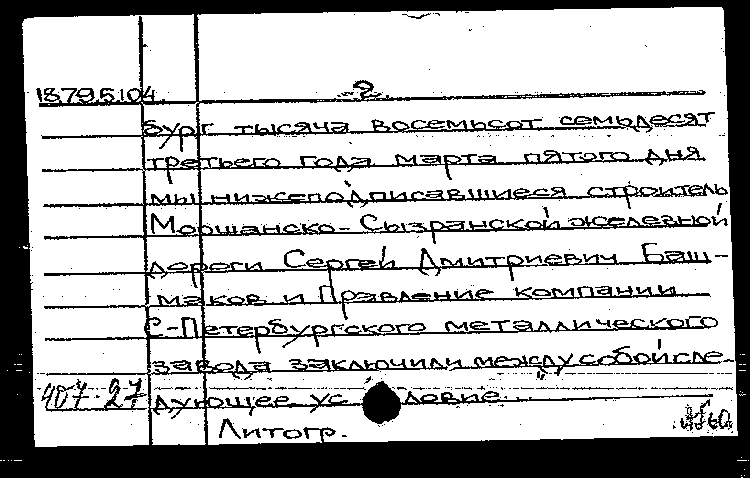 18.79.5.104. -2-
бург тысяча восемьсот семьдесят
третьего года марта пятого дня
мы нижеподписавшиеся строитель
Моршанско-Сызранской железной
дороги Сергей Дмитриевич Баш-
маков и Правление компании
С-Петербургского металлического
завода заключили между собой сле-
407-27 дующее условие..."
Литогр.